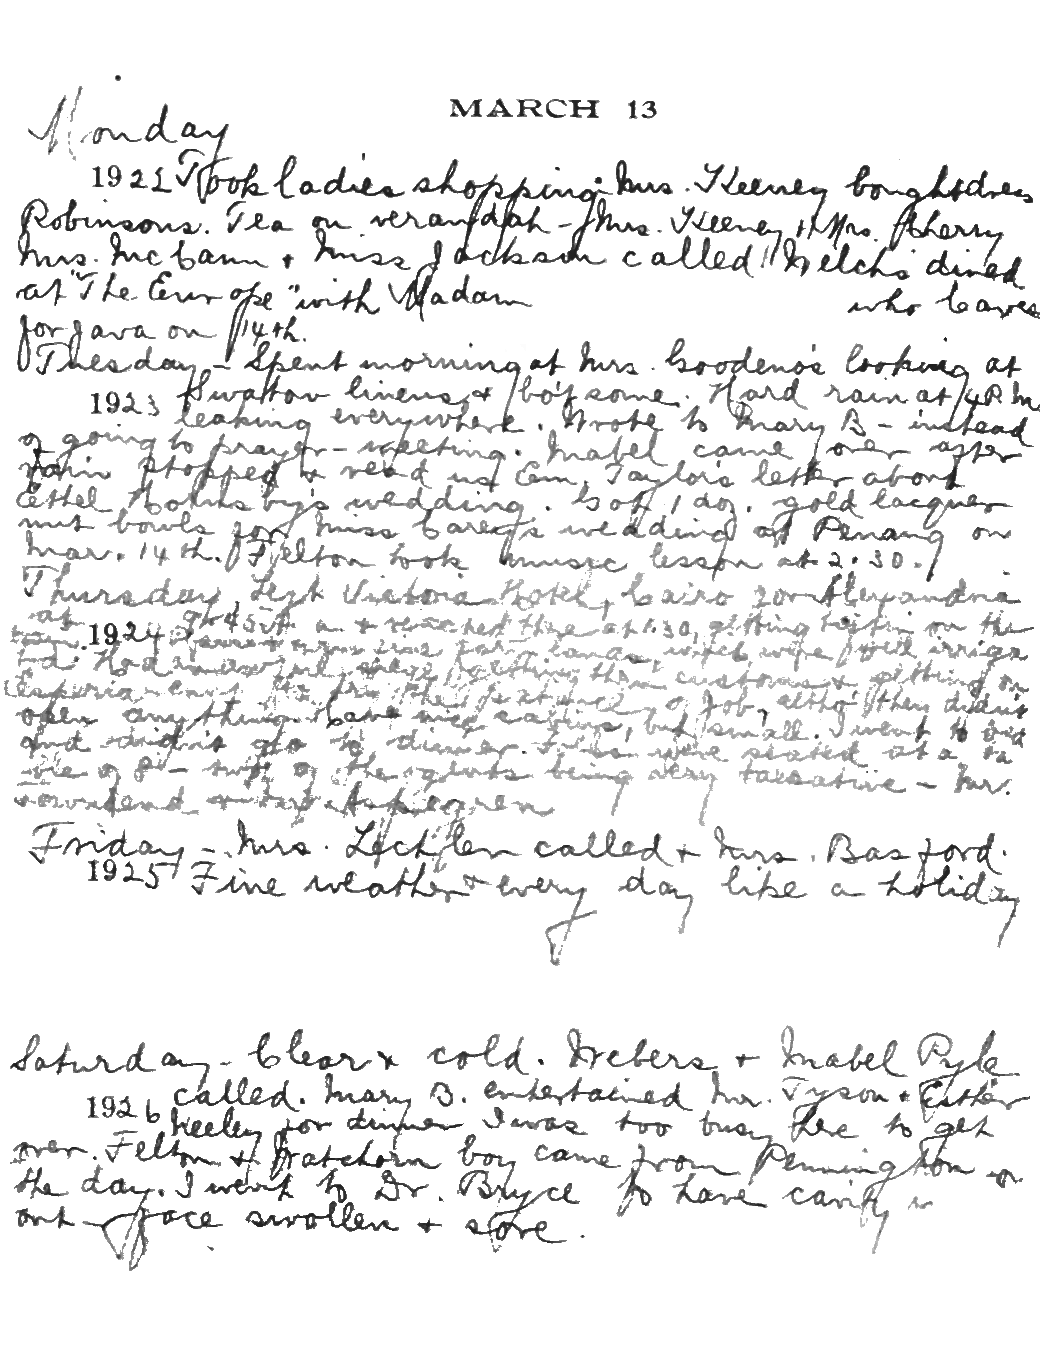 MARCH 13
Monday
1922 Took ladies shopping. Mrs. Keeney bought dress
Robinsons. Tea on verandah - Mrs. Keeney & Mrs. Cherry
Mrs. McCann & Miss Jackson called. Welchs dined
at "The Europe" with Madam who leaves
for Java on 14th.
Tuesday - Spent morning at Mrs. Goodeno's looking at
1923 Swatow linens & bo't some. Hard rain at 4 P.M.
leaking everywhere. Wrote to Mary B - instead
of going to prayer-meeting. Mabel came over after
rain stopped & read us Em. Taylor's letter about
Ethel wedding. Got 1 doz. gold lacquer
nut bowls for Miss Carey's wedding at Penang on
Mar. 14th. Felton took music lesson at 2.30.
Thursday Left Victoria Hotel, Cairo for Alexandria
at & reached there at 1.30, getting tiffin on the
1924
Had an awful getting thru customs & getting on
Esperia of Job, altho' they didn't
open anything. Have nice cabins, but small. I went to bed
and didn't go to dinner. were seated at a ta
ble of 8 - two of the being very talkative - Mr.
Friday - Mrs. called & Mrs. Basford.
1925 Fine weather & every day like a holiday
Saturday - Clear & cold. Webers & Mabel Pyle
1926 called. Mary B. entertained Mr. Tyson & Esther
Keeley for dinner I was too busy here to get
over. Felton & boy came from Pennington
the day. I went to Dr. Bryce to have cavity
out - face swollen & sore.